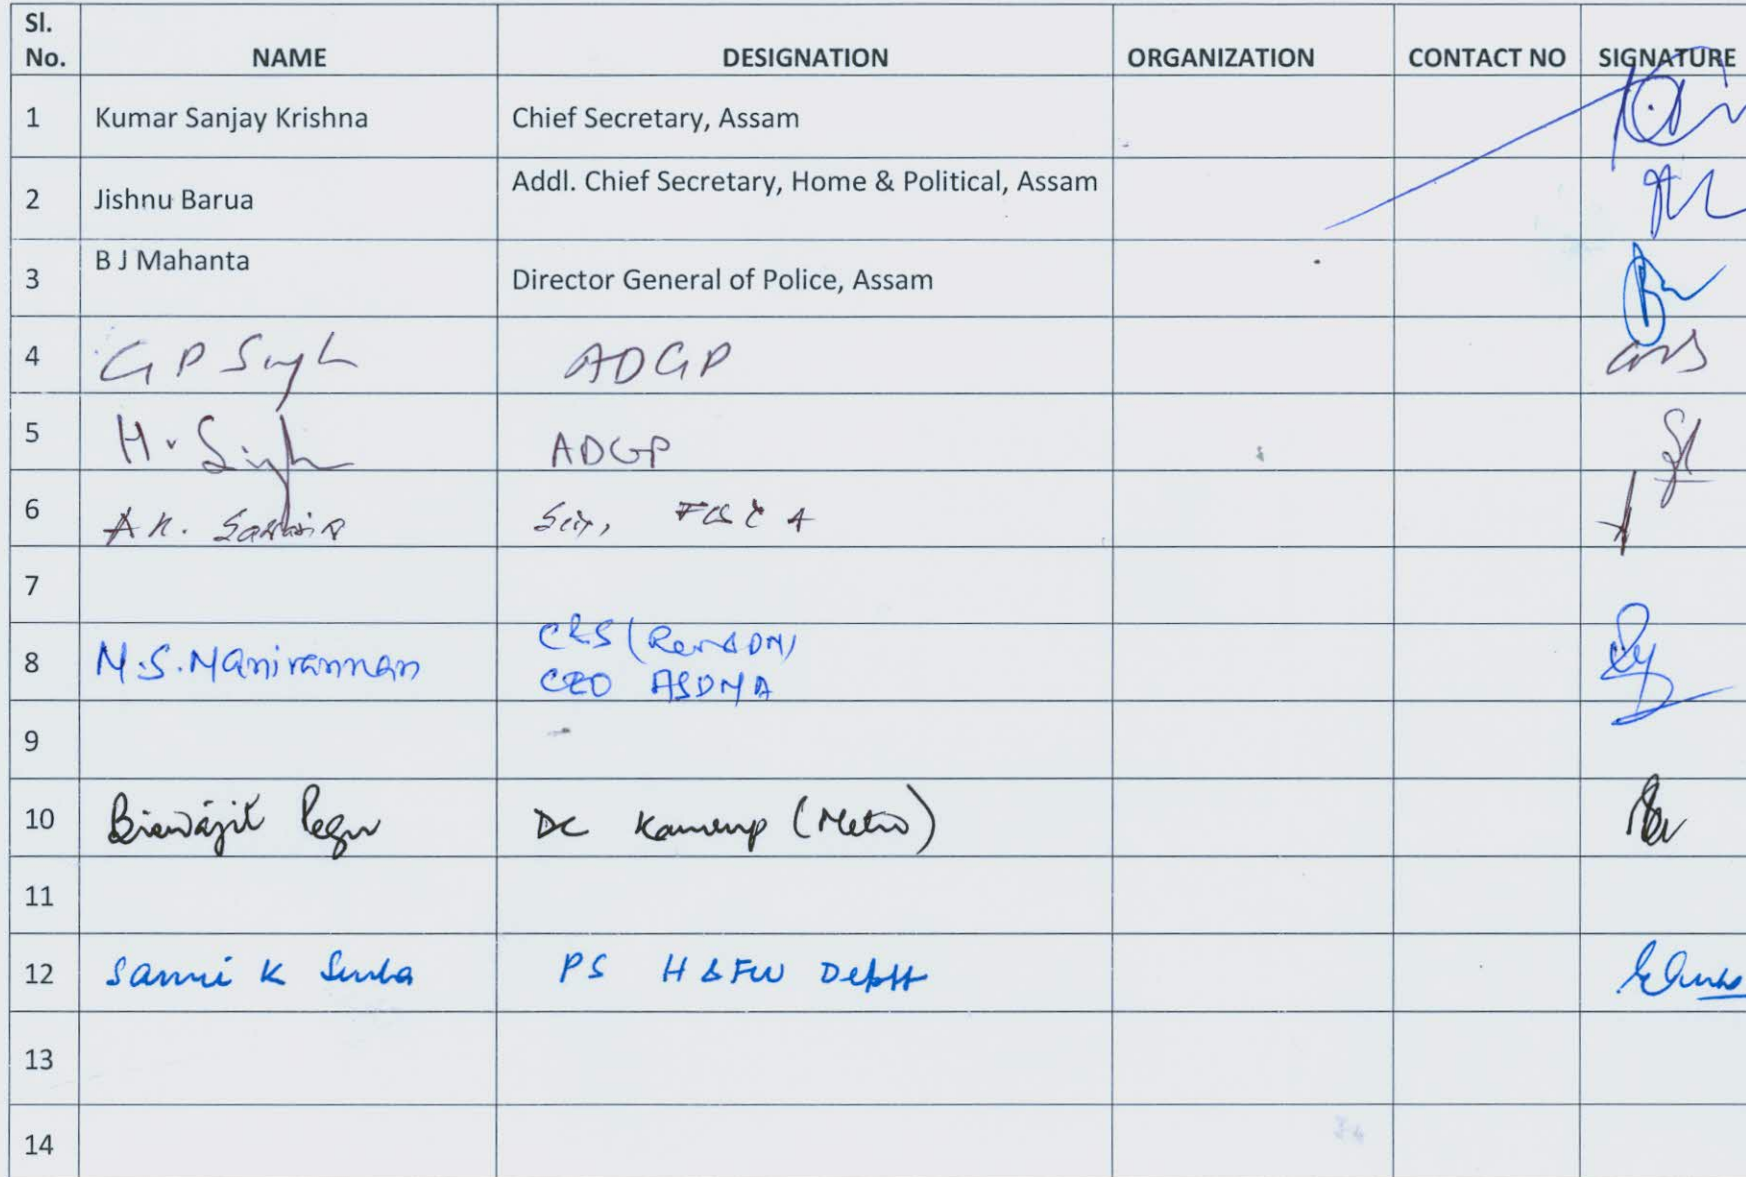 Sl. No. NAME DESIGNATION ORGANIZATION CONTACT NO SIGNATURE
1 Kumar Sanjay Krishna Chief Secretary, Assam
2 Jishnu Barua Addl. Chief Secretary, Home & Political, Assam
3 B J Mahanta Director General of Police, Assam
4 G P Singh ADGP
5 H. Singh ADGP
6 A K.
7
8 M.S. Manivannan C&S (Rev & DM)
CEO ASDMA
9
10 Biswajit Pegu DC Kamrup (Metro)
11
12 K Sinha PS H & FW Deptt
13
14